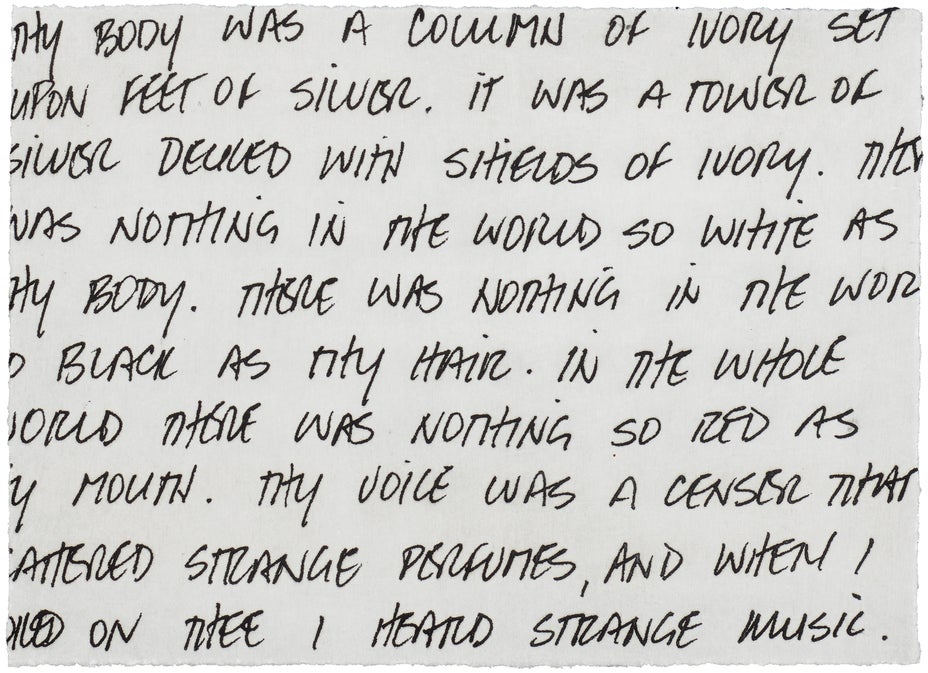 THY BODY WAS A COLUMN OF IVORY SET
UPON FEET OF SILVER. IT WAS A TOWER OF
SILVER DECKED WITH SHIELDS OF IVORY. THER
WAS NOTHING IN THE WORLD SO WHITE AS
HY BODY. THERE WAS NOTHING IN THE WOR
O BLACK AS THY HAIR. IN THE WHOLE
WORLD THERE WAS NOTHING SO RED AS
Y MOUTH. THY VOICE WAS A CENSER THAT
CATTERED STRANGE PERFUMES, AND WHEN I
OOKED ON THEE I HEARD STRANGE MUSIC.